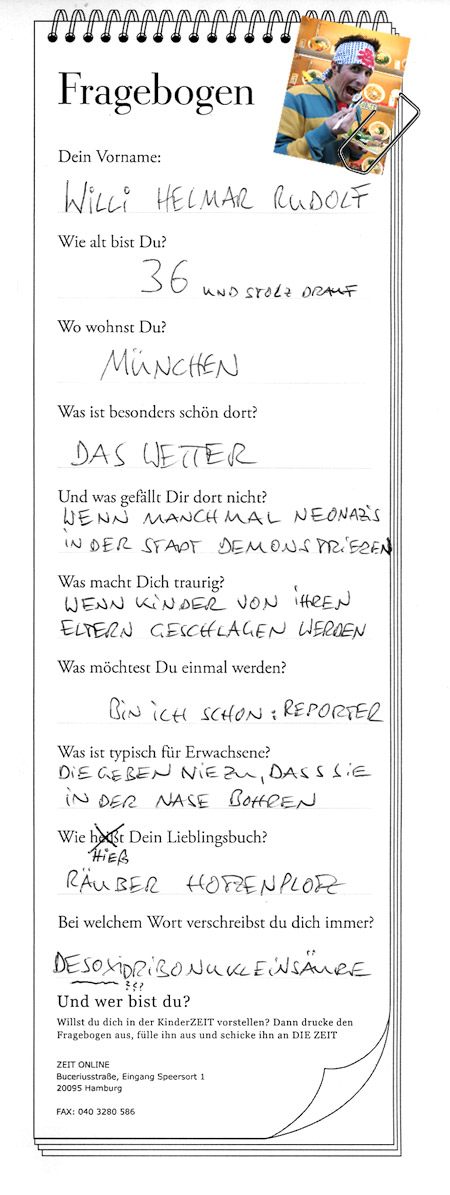 Fragebogen
Dein Vorname:
WILLI HELMAR RUDOLF
Wie alt bist Du?
36 UND STOLZ DRAUF
Wo wohnst Du?
MÜNCHEN
Was ist besonders schön dort?
DAS WETTER
Und was gefällt Dir dort nicht?
WENN MANCHMAL NEONAZIS
IN DER STADT DEMONSTRIEREN
Was macht Dich traurig?
WENN KINDER VON IHREN
ELTERN GESCHLAGEN WERDEN
Was möchtest Du einmal werden?
BIN ICH SCHON: REPORTER
Was ist typisch für Erwachsene?
DIE GEBEN NIE ZU, DASS SIE
IN DER NASE BOHREN
Wie heißt Dein Lieblingsbuch?
HIEß
RÄUBER HOTZENPLOTZ
Bei welchem Wort verschreibst du dich immer?
DESOXIDRIBONUKLEINSÄURE
???
Und wer bist du?
Willst du dich in der KinderZEIT vorstellen? Dann drucke den
Fragebogen aus, fülle ihn aus und schicke ihn an DIE ZEIT
ZEIT ONLINE
Buceriusstraße, Eingang Speersort 1
20095 Hamburg
FAX: 040 3280 586